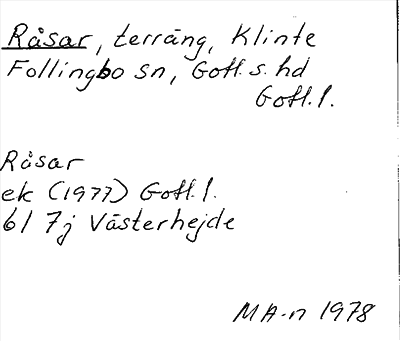 Råsar, terräng, Klinte
Follingbo sn, Gotl. s. hd
Gotl. l.
Råsar
ek (1977) Gotl. l.
6I 7j Västerhejde
MA-n 1978